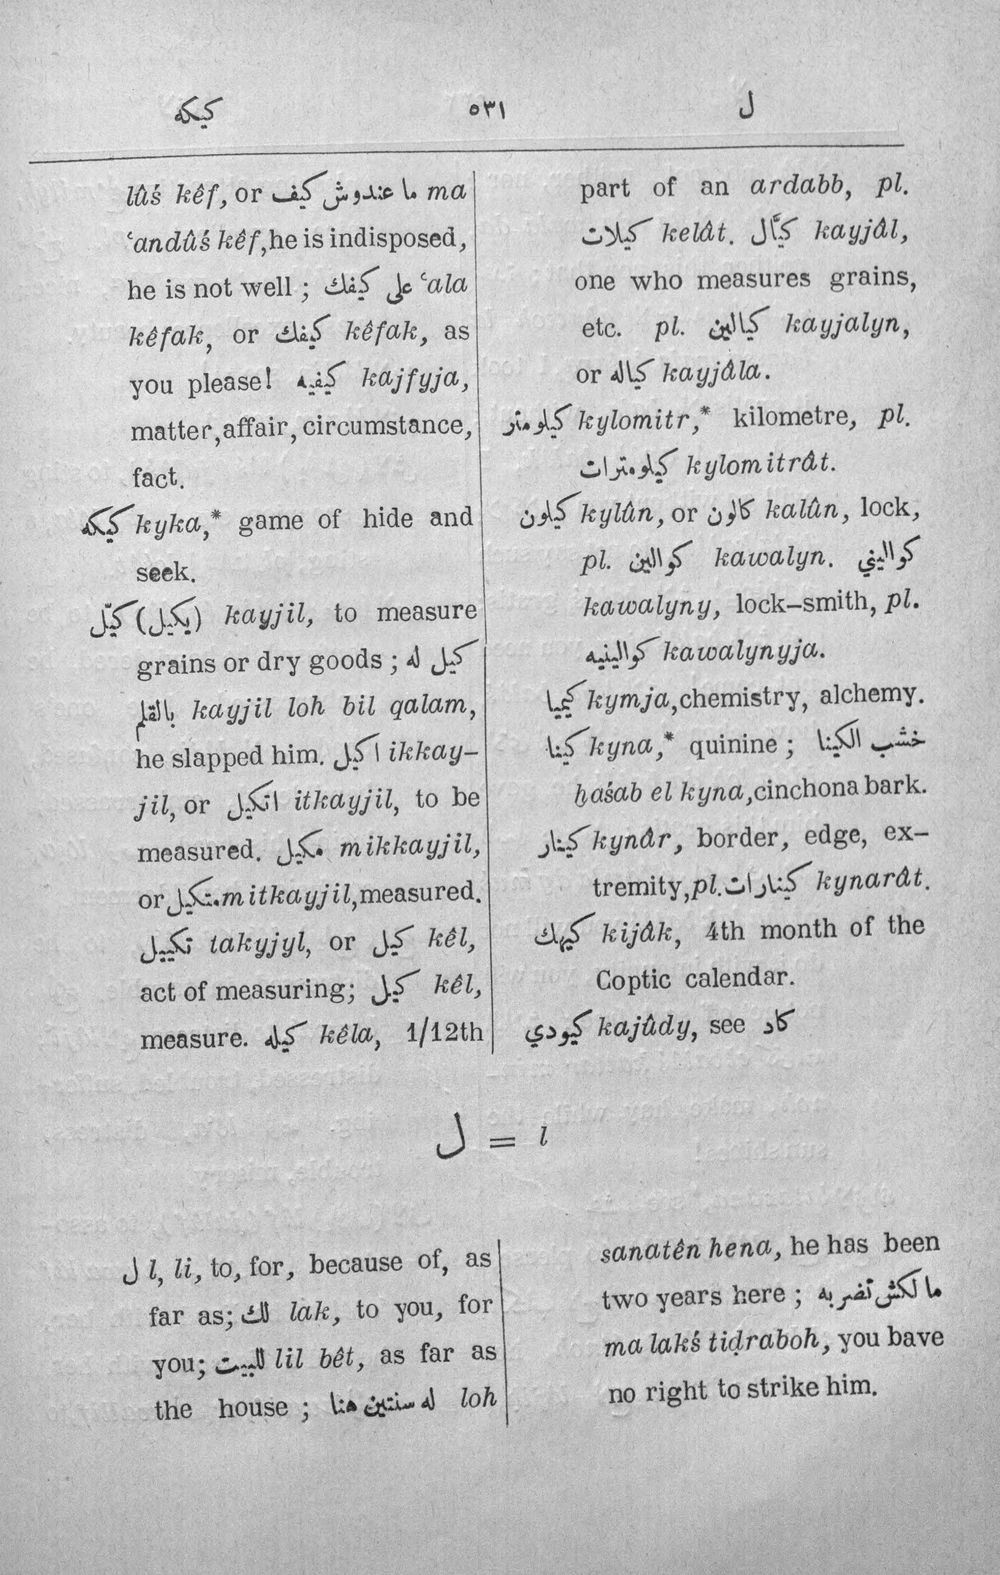 كيكه ٥٣١ ل
lûś kêf, or ما عندوش كيف ma
ʻandûś kêf, he is indisposed,
he is not well ; على كيفك ʻala
kêfak, or كيفك kêfak, as
you please! كيفيه kajfyja,
matter, affair, circumstance,
fact.
كيكه kyka,* game of hide and
seek.
كيّل (يكيل) kayjil, to measure
grains or dry goods ; كيل له
بالقلم kayjil loh bil qalam,
he slapped him. اكيل ikkay–
jil, or اتكيل itkayjil, to be
measured. مكيل mikkayjil,
or متكيل mitkayjil, measured.
تكييل takyjyl, or كيل kêl,
act of measuring; كيل kêl,
measure. كيله kêla, 1/12th
part of an ardabb, pl.
كيلات kelât. كيَّال kayjâl,
one who measures grains,
etc. pl. كيالين kayjalyn,
or كياله kayjâla.
كيلومتر kylomitr,* kilometre, pl.
كيلومترات kylomitrât.
كيلون kylûn, or كالون kalûn, lock,
pl. كوالين kawalyn. كواليني
kawalyny, lock–smith, pl.
كوالينيه kawalynyja.
كيميا kymja, chemistry, alchemy.
كينا kyna,* quinine ; خشب الكينا
ḫaśab el kyna, cinchona bark.
كينار kynâr, border, edge, ex–
tremity, pl. كينارات kynarât.
كيهك kijâk, 4th month of the
Coptic calendar.
كيودي kajûdy, see كاد
ل = l
ل l, li, to, for, because of, as
far as; لك lak, to you, for
you; للبيت lil bêt, as far as
the house ; له سنتين هنا loh
sanatên hena, he has been
two years here ; ما لكش تضربه
ma lakś tiḍraboh, you bave
no right to strike him.